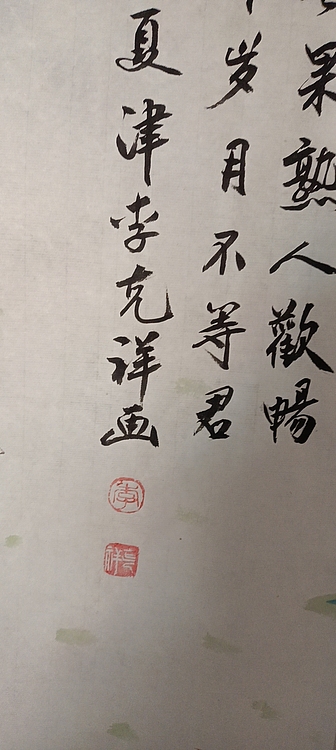 果熟人歡暢
岁月不等君
夏津李克祥画
李